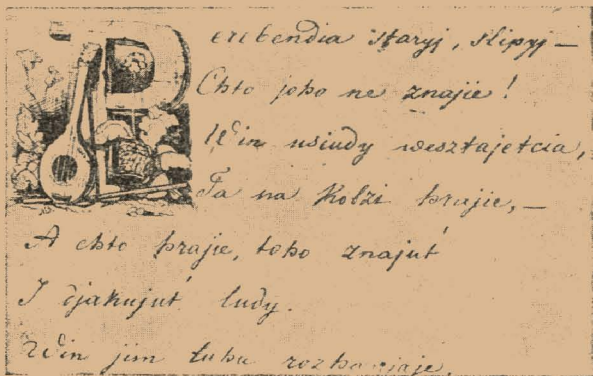 Perebendia staryj, slipyj —
Chto joho ne znajie!
Win usiudy wesztajetcia,
Ta na Kobzi hrajie, —
A chto hrajie, toho znajut'
I djakujut' ludy.
Win jim tuhu rozhaniaje,